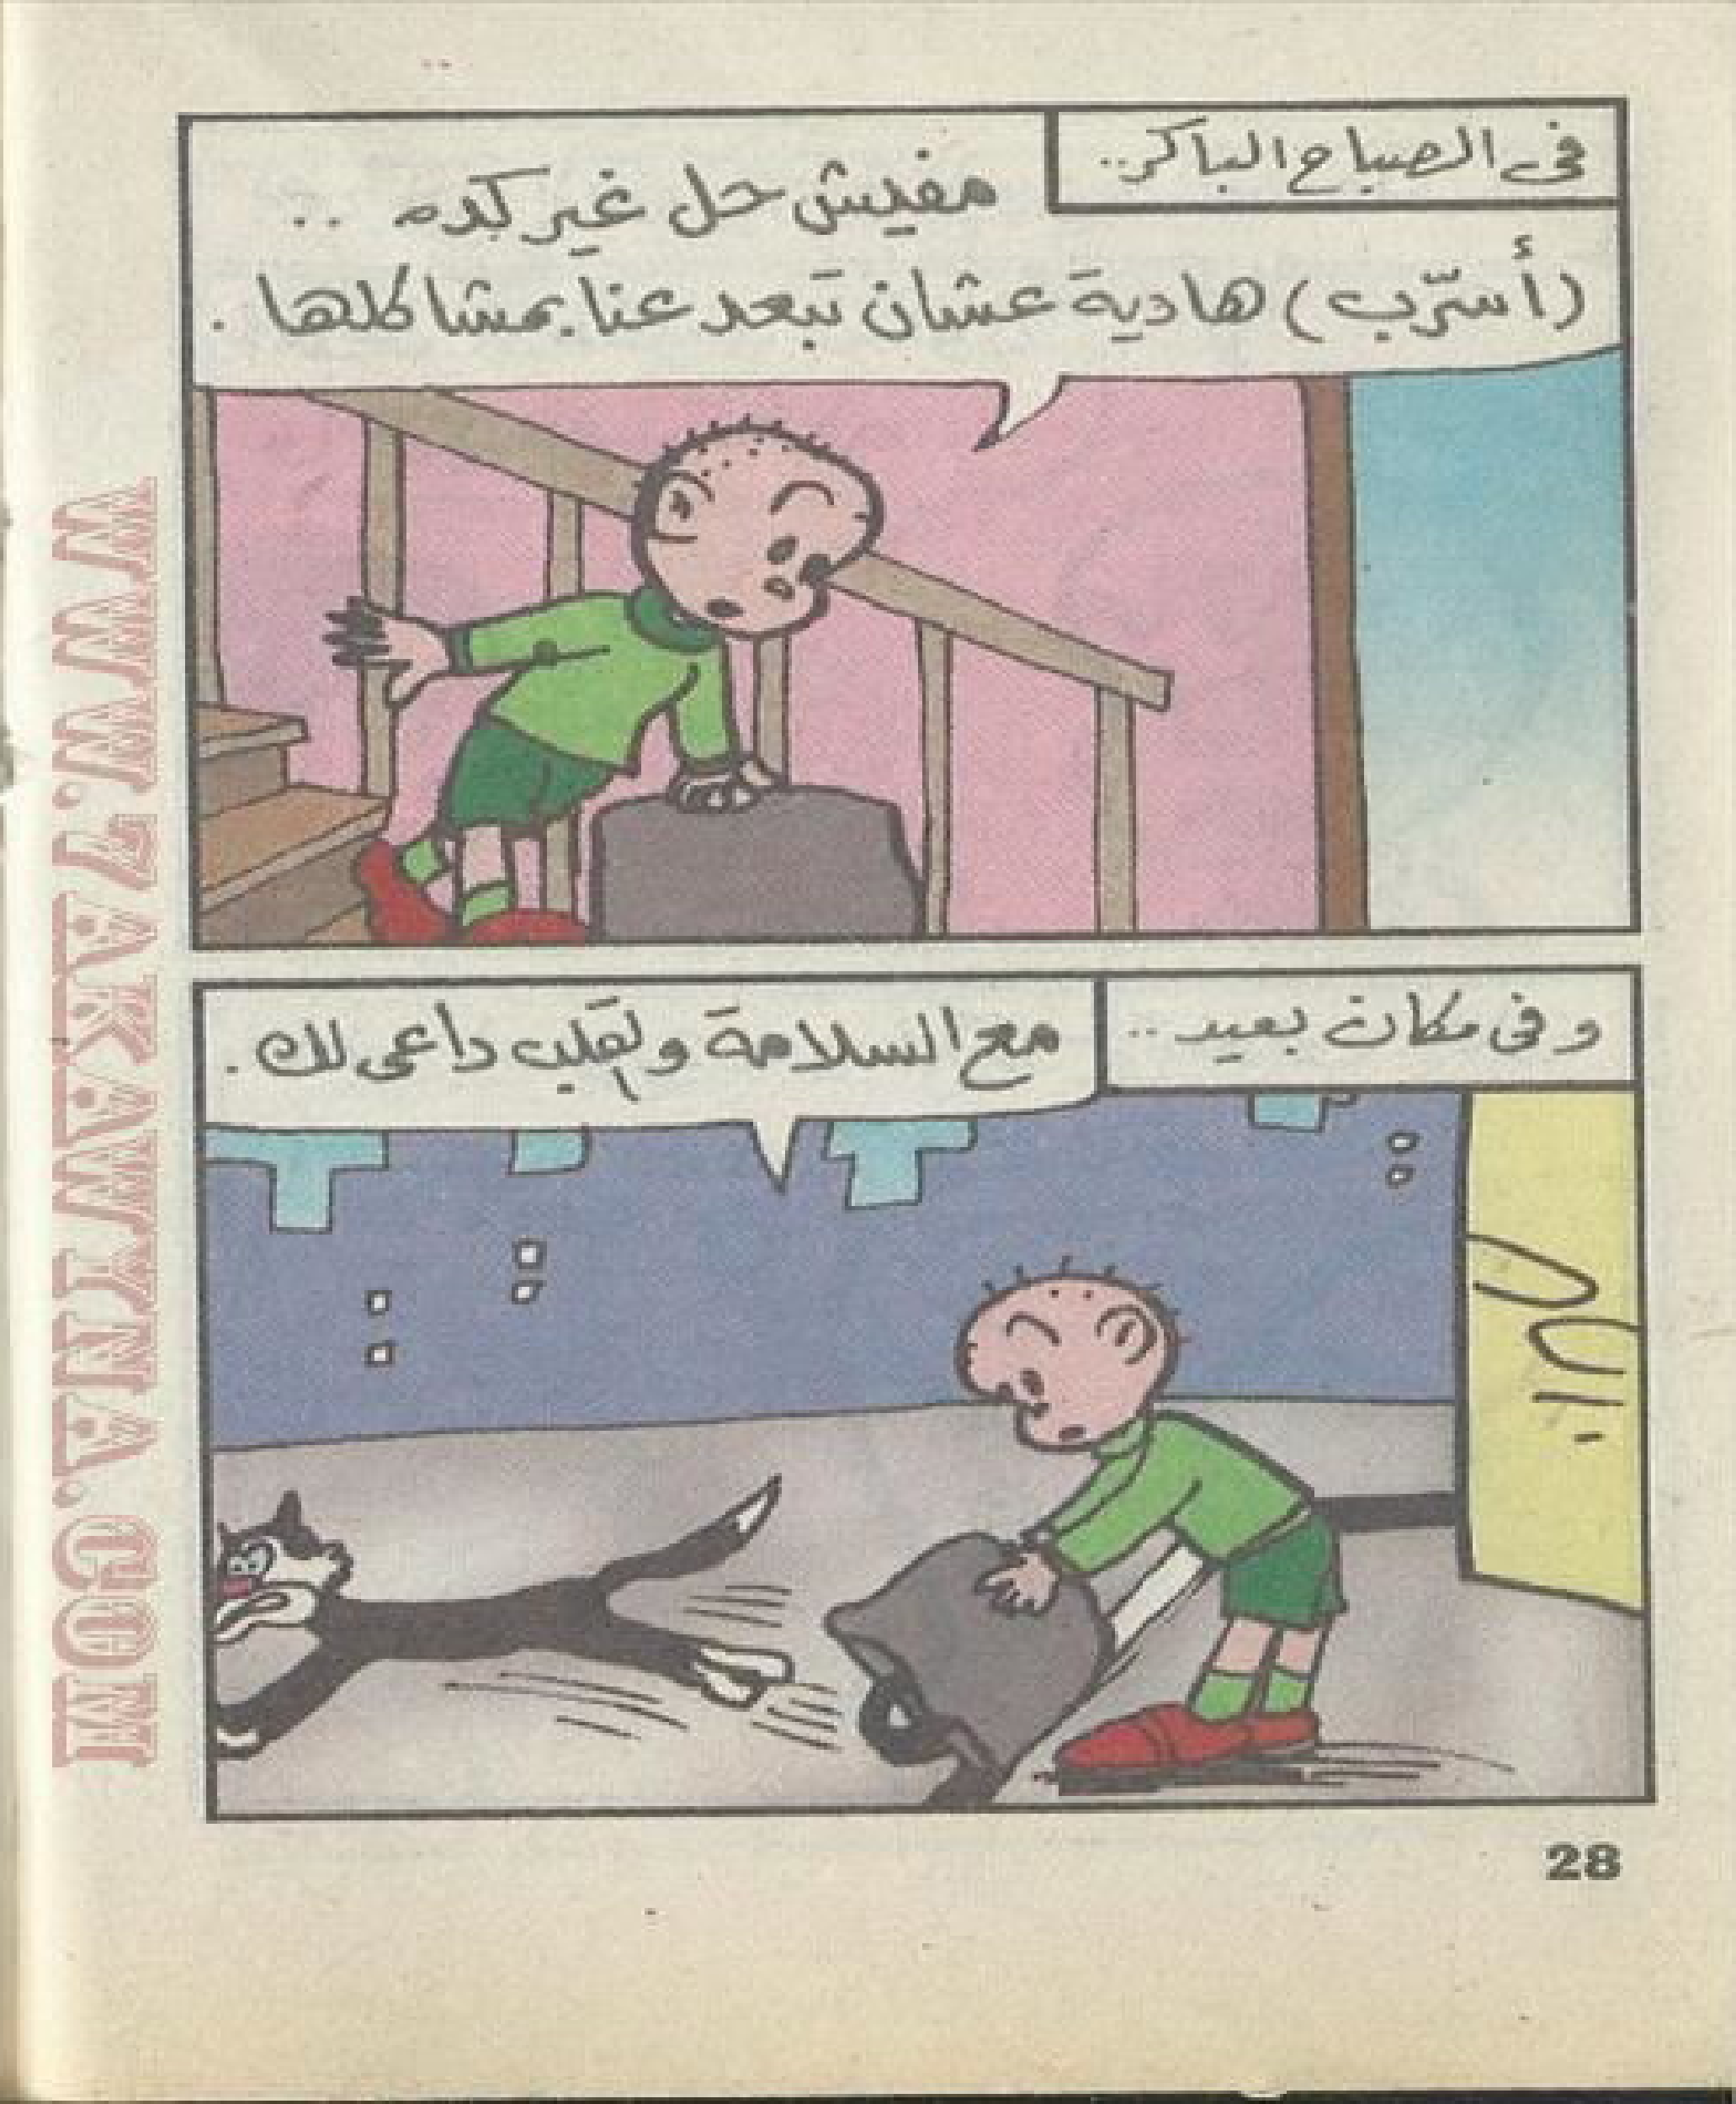 فى الصباح الباكر..
مفيش حل غير كده ..
(أسرّب) هادية عشان تبعد عنا بمشاكلها .
وفى مكان بعيد ..
مع السلامة والقلب داعى لك .
28
WWW.7AKAWITNA.COM